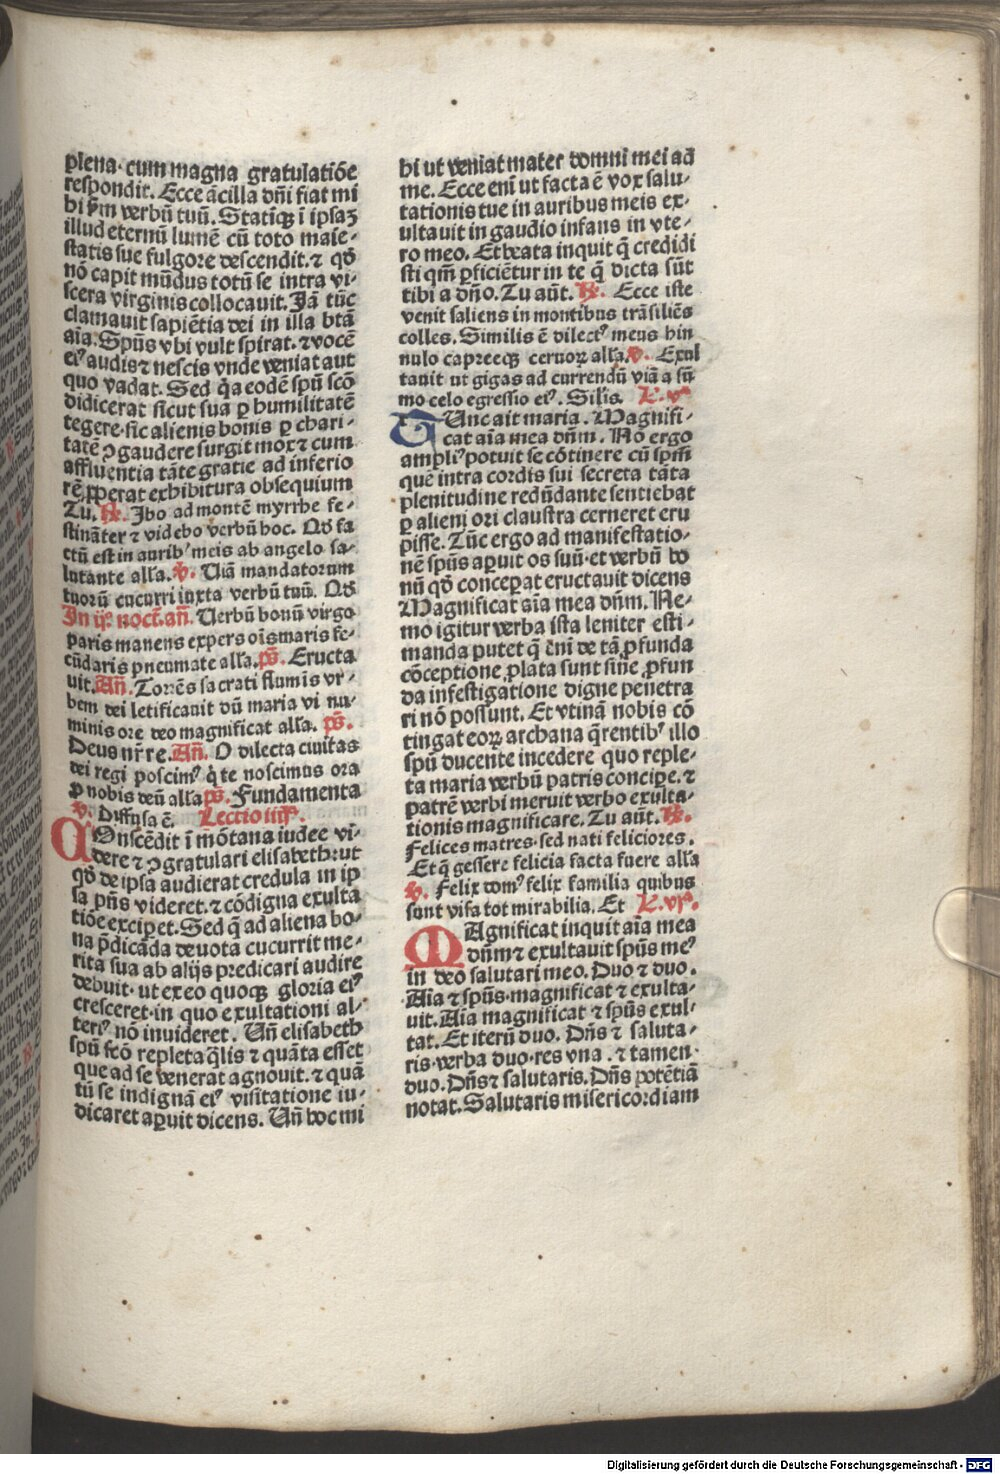 plena· cum magna gratulatiōe
respondit. Ecce ācilla dn̄i fiat mi
hi ꝑm verbū tuū. Statiqꝫ ī ipsaꝫ
illud eternū lumē cū toto maie-
statis sue fulgore descendit. ⁊ qđ
nō capit mūdus totū se intra vi-
scera virginis collocauit. Jā tūc
clamauit sapiētia dei in illa btā
aīa. Spūs vbi vult spirat. ⁊ vocē
eiꝰ audis ⁊ nescis vnde veniat aut
quo vadat. Sed q̄a eodē spū scō
didicerat sicut sua ꝑ humilitatē
tegere· sic alienis bonis ꝑ chari-
tatē ꝯgaudere surgit mox ⁊ cum
affluentia tāte gratie ad inferio
rē ꝓperat exhibitura obsequium
Tu. ℟. Jbo ad montē myrrhe fe-
stināter ⁊ videbo verbū hoc. Qđ fa
ctū est in auribꝰ meis ab angelo sa-
lutante alĺa. ℣. Uiā mandatorum
tuorū cucurri iuxta verbū tuū. Qđ
In ijº noct̄. an̄. Uerbū bonū virgo
paris manens expers oīs maris fe-
cūdaris pneumate alĺa. ps̄. Eructa
uit. An̄. Torrēs sacrati flumīs vr-
bem dei letificauit dū maria vi nu-
minis ore deo magnificat alĺa. ps̄.
Deus nr̄ re. An̄. O dilecta ciuitas
dei regi poscimꝰ q̄ te noscimus ora
ꝓ nobis deū alĺa ps̄. Fundamenta
℣. Diffusa ē. Lectio iiijª.
COnscēdit ī mōtana iudee vi-
dere ⁊ ꝯgratulari elisabeth· ut
qđ de ipsa audierat credula in ip
sa pn̄s videret. ⁊ cōdigna exulta
tiōe exciꝑet. Sed q̄ ad aliena bo-
na p̄dicāda deuota cucurrit me-
rita sua ab alijs predicari audire
debuit· ut ex eo quoqꝫ gloria eiꝰ
cresceret· in quo exultationi al-
teriꝰ nō inuideret. Un̄ elisabeth
spū scō repleta q̄lis ⁊ quāta esset
que ad se venerat agnouit. ⁊ quā
tū se indignā eiꝰ visitatione iu-
dicaret aꝑuit dicens. Un̄ hoc mi
hi ut veniat mater domni mei ad
me. Ecce eni ut facta ē vox salu-
tationis tue in auribus meis ex-
ultauit in gaudio infans in vte-
ro meo. Et beata inquit q̄ credidi
sti qm̄ ꝑficiētur in te q̄ dicta sūt
tibi a dn̄o. Tu aūt. ℟. Ecce iste
venit saliens in montibus trāsiliēs
colles. Similis ē dilectꝰ meus hin
nulo capreeqꝫ ceruoꝝ alĺa. ℣. Exul
tauit ut gigas ad currendū viā a sū
mo celo egressio eiꝰ. Silis L. vª
TUnc ait maria. Magnifi-
cat aīa mea dn̄m. Nō ergo
ampliꝰ potuit se cōtinere cū spm̄
quē intra cordis sui secreta tāta
plenitudine redūdante sentiebat
ꝑ alieni ori claustra cerneret eru
pisse. Tūc ergo ad manifestatio-
nē spūs aꝑuit os suū· et verbū bo
nū qđ conceꝑat eructauit dicens
Magnificat aīa mea dn̄m. Ne-
mo igitur verba ista leniter esti-
manda putet q̄ ēni de tā ꝓfunda
cōceptione ꝓlata sunt sine ꝓfun
da infestigatione digne penetra
ri nō possunt. Et vtinā nobis cō
tingat eoꝝ archana q̄rentibꝰ illo
spū ducente incedere quo reple-
ta maria verbū patris concipe. ⁊
patrē verbi meruit verbo exulta-
tionis magnificare. Tu aūt. ℟.
Felices matres· sed nati feliciores.
Et q̄ gessere felicia facta fuere alĺa
℣. Felix domꝰ felix familia quibus
sunt visa tot mirabilia. Et L. vjª.
MAgnificat inquit aīa mea
dn̄m ⁊ exultauit spūs meꝰ
in deo salutari meo. Duo ⁊ duo.
Aīa ⁊ spūs· magnificat ⁊ exulta-
uit. Aīa magnificat ⁊ spūs exul-
tat. Et iterū duo. Dn̄s ⁊ saluta-
ris· verba duo· res vna. ⁊ tamen
duo. Dn̄s ⁊ salutaris. Dn̄s potētiā
notat. Salutaris misericordiam
Digitalisierung gefördert durch die Deutsche Forschungsgemeinschaft - DFG